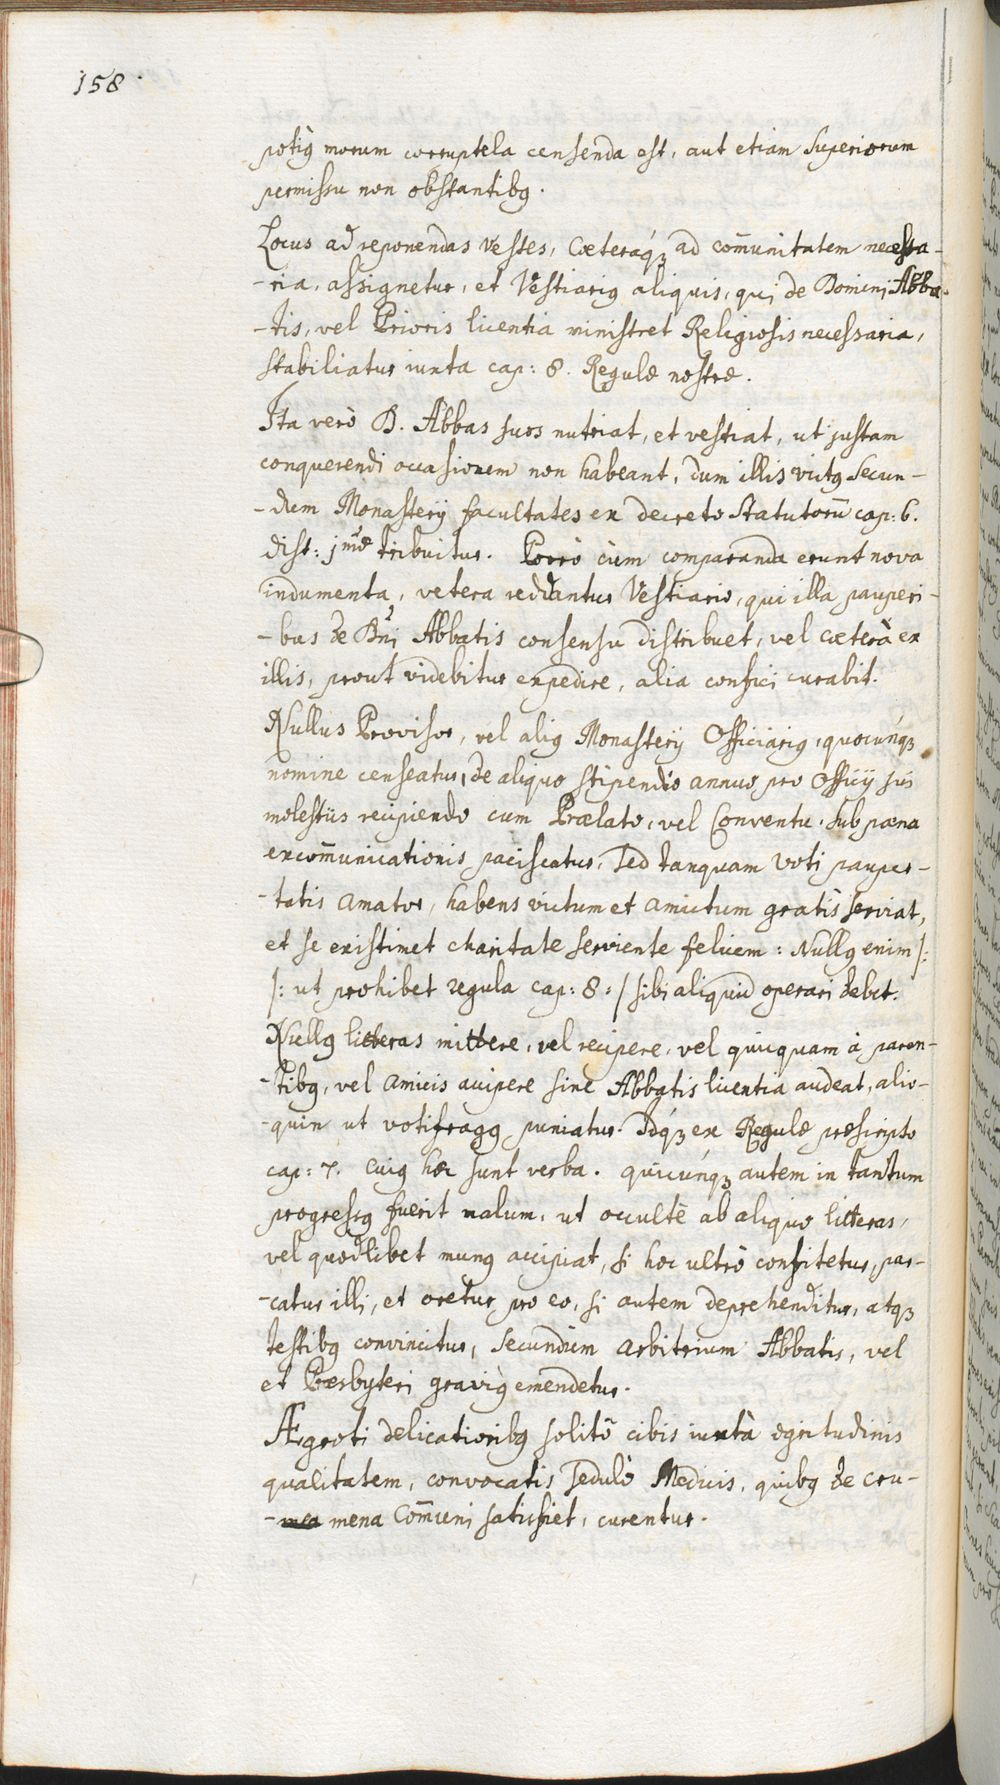 158.
potiꝰ morum corruptela censenda est, aut etiam Superiorum
permissu non obstantibꝰ.
Locus ad reponendas Vestes, Cæteráqꝫ ad com̄unitatem necessa-
-ria, assignetur, et Vestiariꝰ aliquis, qui de Domini Abba-
-tis, vel Prioris licentia ministret Religiosis necessaria,
stabiliatur iuxta cap: 8. Regulæ nostræ.
Ita verò D. Abbas suos nutriat, et vestiat, ut justam
conquerendi occasionem non habeant, dum illis victꝰ Secun-
-dum Monasterij facultates ex decreto Statutorū cap: 6.
dist: jmæ tribuitur. Porrò cùm comparanda erunt nova
indumenta, vetera reddantur Vestiario, qui illa pauperi-
-bus de Dn̄i Abbatis consensu distribuet, vel cætera ex
illis, prout videbitur expedire, alia confici curabit.
Nullus Provisor, vel aliꝰ Monasterij Officiariꝰ, quocúnqꝫ
nomine censeatur, de aliquo stipendio annuo pro Officij sui
molestiis recipiendo cum Prælato, vel Conventu, sub pæna
excom̄unicationis paciscatur, Sed tanquam Voti pauper-
-tatis amator, habens victum et amictum gratis serviat,
et se existimet charitate serviente felicem: Nullꝰ enim /:
/: ut prohibet regula cap: 8 :/ sibi aliquid operari debet.
Nullꝰ litteras mittere, vel recipere, vel quicquam à paren-
-tibꝰ, vel amicis accipere sine Abbatis licentia audeat, alio-
-quin ut votifragꝰ puniatur. Idqꝫ ex Regulæ præscripto
cap: 7. cuiꝰ hæc sunt verba. quicúnqꝫ autem in tantum
progressꝰ fuerit malum, ut occultè ab aliquo litteras,
vel quodlibet munꝰ accipiat, si hoc ultrò confitetur, par-
-catur illi, et oretur pro eo, si autem deprehenditur, atqꝫ
testibꝰ convincitur, secundùm arbitrium Abbatis, vel
et Præsbyteri graviꝰ emendetur.
Ægroti delicatioribꝰ solitò cibis iuxtà ægritudinis
qualitatem, convocatis Sedulò Medicis, quibꝰ de cru-
-mena Com̄uni satisfiet, curentur.